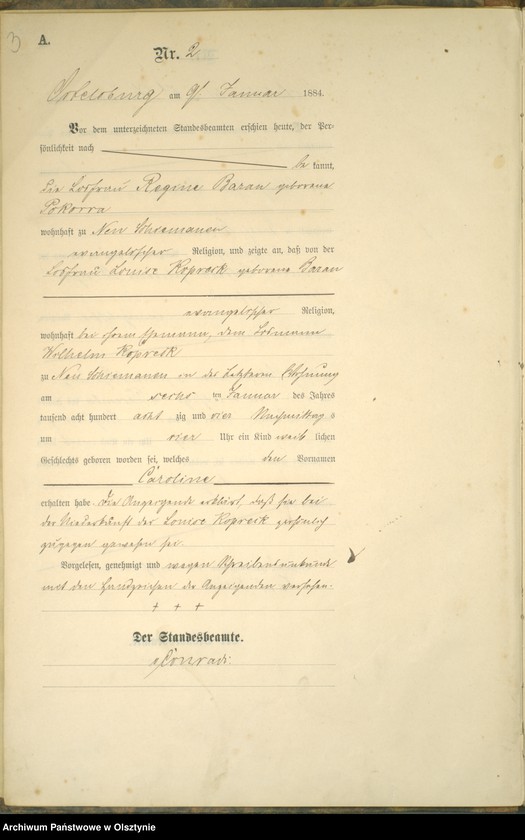 3
A.
Nr. 2
Ortelsburg am 9/ Januar 1884.
Vor dem unterzeichneten Standesbeamten erschien heute, der Per-
sönlichkeit nach
be kannt,
die Losfrau Regine Baran geborene
Pokorra
wohnhaft zu Neu
evangelischer Religion, und zeigte an, daß von der
Losfrau Louise Kopreck geborene Baran
evangelischer Religion,
wohnhaft bei ihrem Ehemanne, dem Losmann
Wilhelm Kopreck
zu Neu in des Letzteren Wohnung
am sechs ten Januar des Jahres
tausend acht hundert acht zig und vier Nachmittags
um vier Uhr ein Kind weib lichen
Geschlechts geboren worden sei, welches den Vornamen
Caroline
erhalten habe. Die Anzeigende erklärt, daß sie bei
der Niederkunft der Louise Kopreck persönlich
zugegen gewesen sei.
Vorgelesen, genehmigt und wegen Schreibensunkunde
mit den Handzeichen der Anzeigenden versehen.
+ + +
Der Standesbeamte.
Conradi.
Archiwum Państwowe w Olsztynie